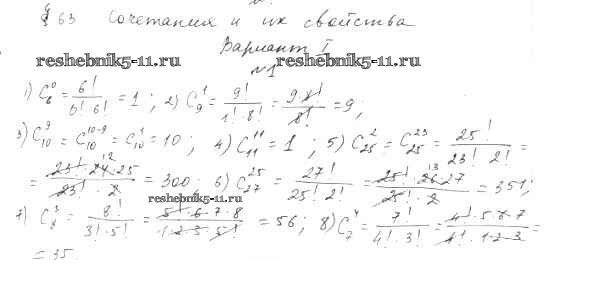 § 63 Сочетания и их свойства
Вариант I
reshebnik5-11.ru reshebnik5-11.ru
№1
1) C₆⁰ = 6!/(0! 6!) = 1 ; 2) C₉¹ = 9!/(1! · 8!) = (9 · 8!)/8! = 9 ;
3) C₁₀⁹ = C₁₀¹⁰⁻⁹ = C₁₀¹ = 10 ; 4) C₁₁¹¹ = 1 ; 5) C₂₅² = C₂₅²³ = 25!/(23! 2!) =
= (23! · 24 · 25)/(23! · 2) = 300 ; 6) C₂₇²⁵ = 27!/(25! · 2!) = (25! · 26 · 27)/(25! · 2) = 351 ;
reshebnik5-11.ru
7) C₈³ = 8!/(3! · 5!) = (5! · 6 · 7 · 8)/(1 · 2 · 3 · 5!) = 56 ; 8) C₇⁴ = 7!/(4! · 3!) = (4! · 5 · 6 · 7)/(4! · 1 · 2 · 3) =
= 35